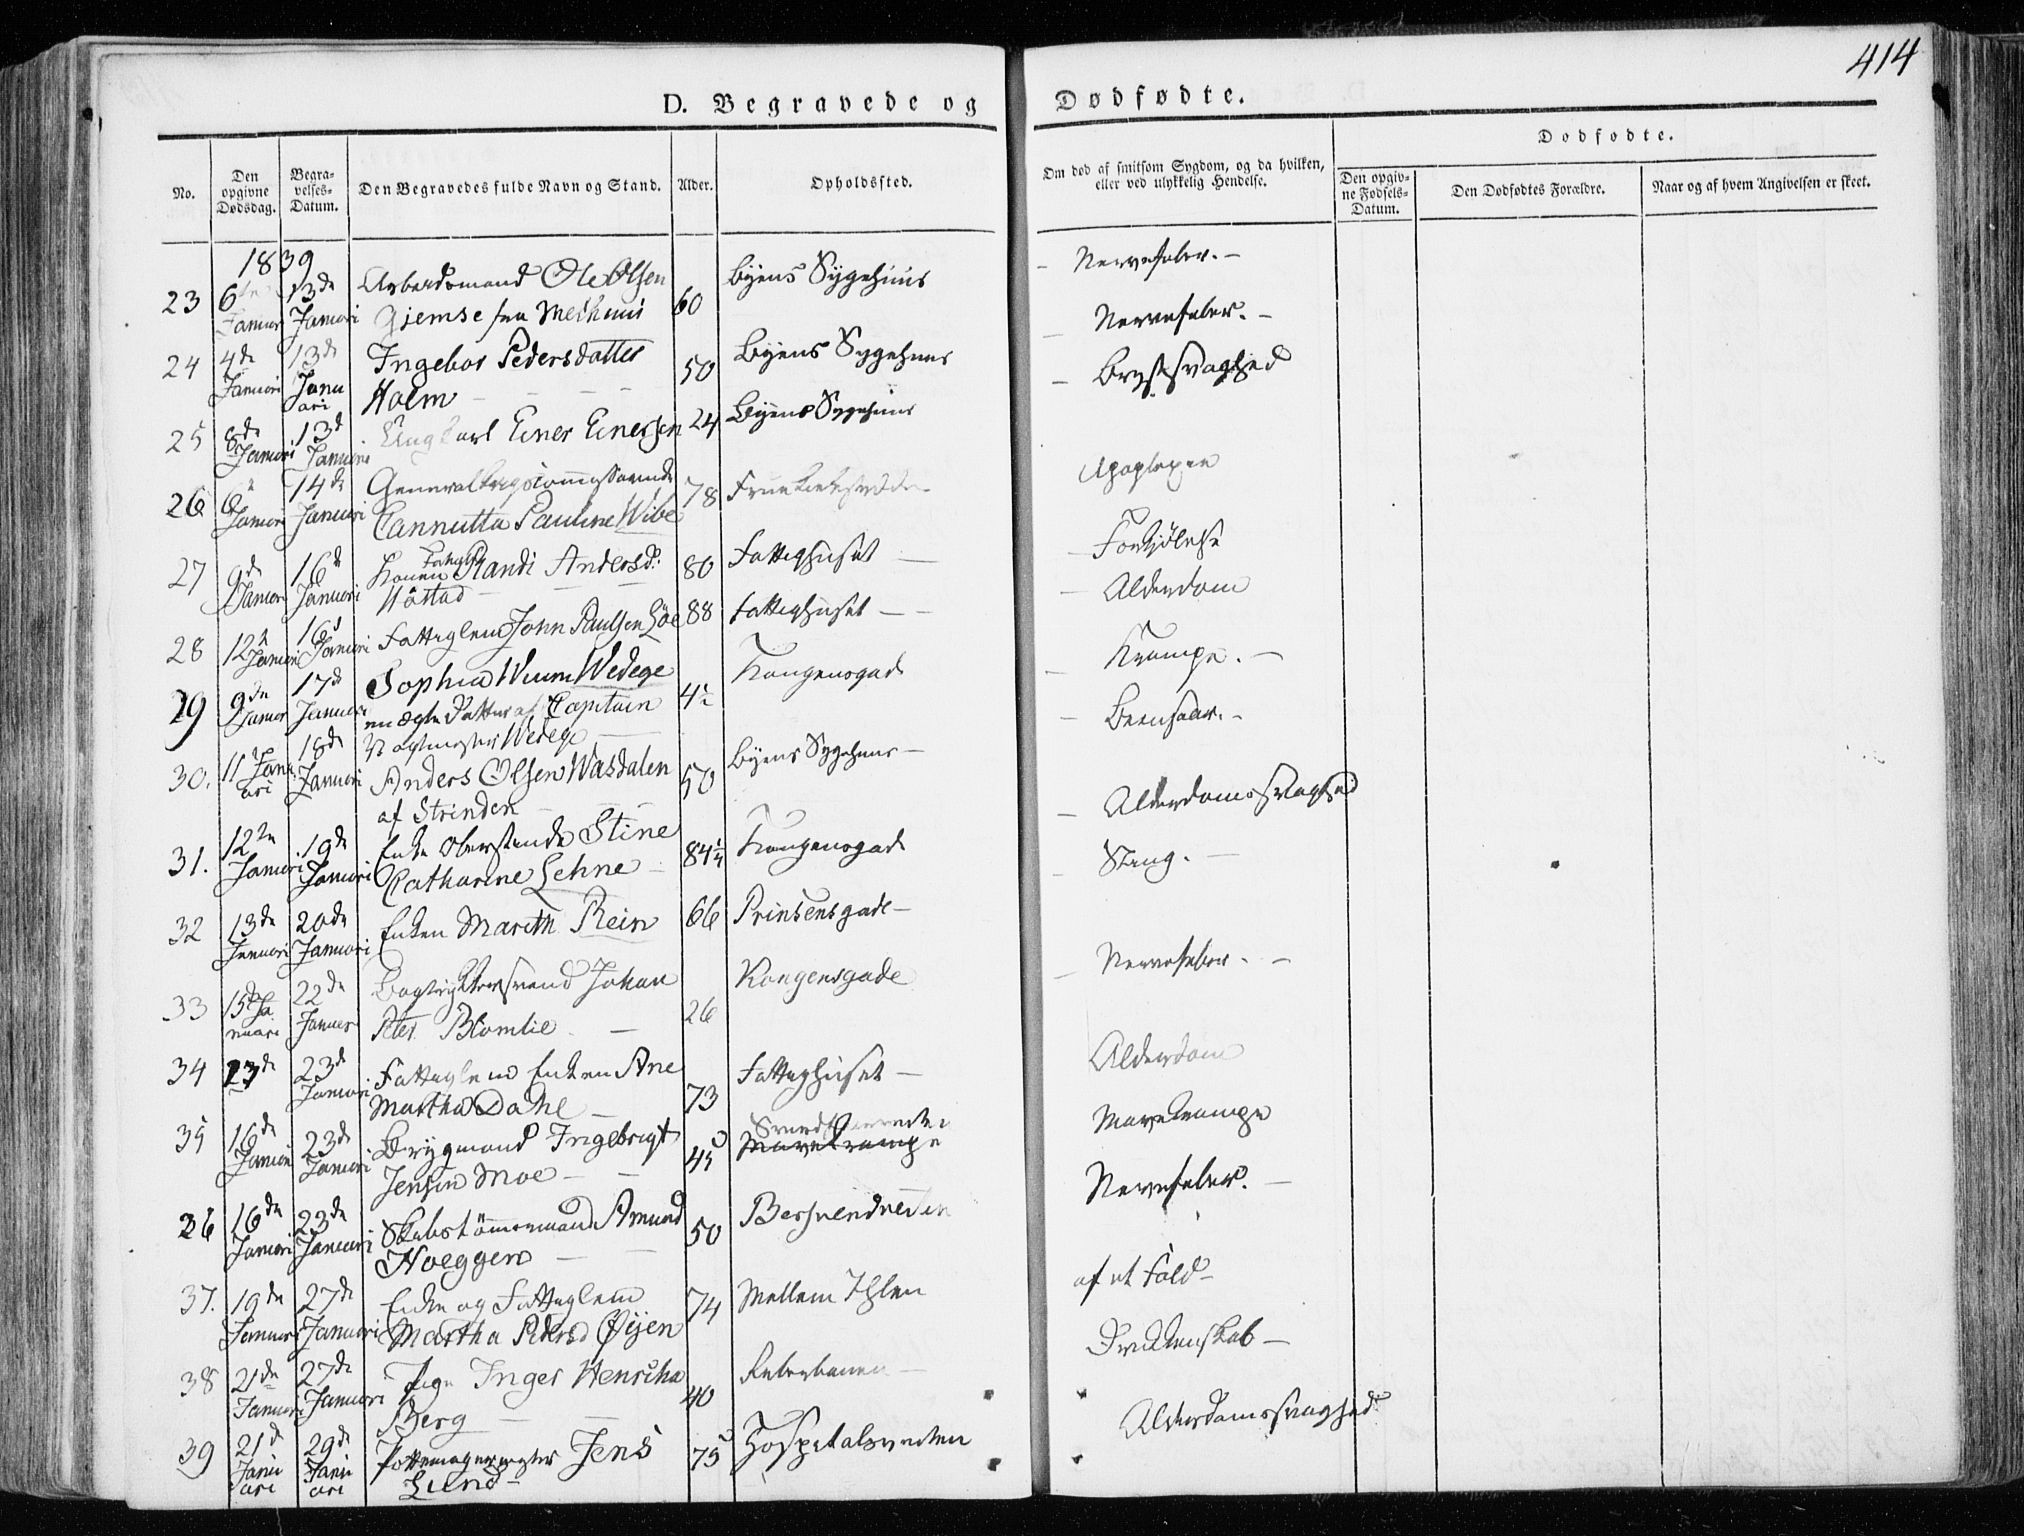 414
D. Begravede og Dødfødte.
No.
Den opgivne Dødsdag.
Begravelses-Datum.
Den Begravedes fulde Navn og Stand.
Alder.
Opholdssted.
Om død af smitsom Sygdom, og da hvilken, eller ved ulykkelig Hendelse.
Dødfødte.
Den opgivne Fødsels-Datum.
Den Dødfødtes Forældre.
Naar og af hvem Angivelsen er skeet.
1839
23 6te Januar 13de Januari Arbeidsmand Ole Olsen 60 Byens Sygehuus Nervefeber.
Gjemse fra Melhuus
24 4de Januari 13de Januari Ingebor Pedersdatter 50 Byens Sygehuus Nervefeber.
Holm
25 8de Januari 13d Januari Ungkarl Einer Einersen 24 Byens Sygehuus Brystsvaghed
26 6 Januari 14de Januari 78
Cannutta Pauline Wibe
Apoplexie
27 9de Januari 16d Januari Konen Randi Andersd: 80 Fattighuset Forkjølelse
Höstad
28 12 Januari 16d Januari Fattiglem John Paulsen Löe 88 Fattighuset Alderdom
29 9de Januar 17d Januari Sophia Wuum Wedege 4½ Kongensgade Krampe.
en ægte Datter af Capitain
Wedege
30. 11 Januari 18de Januari Anders Olsen Wasdalen 50 Byens Sygehuus Beensaar.
af Strinden
31. 12te Januari 19de Januari Enke Oberstinde Stine 84¼ Kongensgade Alderdomssvaghed
Catharine Lehne
32 13de Januari 20de Januari Enken Marith Rein 66 Prinsensgade Sting.
33 15d Januari 22de Januar Bogtrykkersvend Johan 26 Kongensgade Nervefeber.
Peter Blomlie
34 13de 23de Januari Fattiglem Enken Ane 73 Fattighuset Alderdom
Martha Dahl
35 16de Januari 23de Januari Brygmand Ingebrigt 45 Mavekrampe
Jensen Moe
Mavekrampe
36 16de Januari 23de Januari Skibstömmermand Amund 50 Nervefeber.
Hoeggen
37. 19de Januari 27de Januari Enke og Fattiglem 74 Mellem Ihlen af et Fald
Martha Pedersd Øijen
38 21de Januari 27de Januari Pige Inger Henricha 40 Reberbanen Drukkenskab
Berg
39 21d Januari 29de Januari Pottemagermester Jens 75 Hospitalsveiten Alderdomssvaghed
Lund